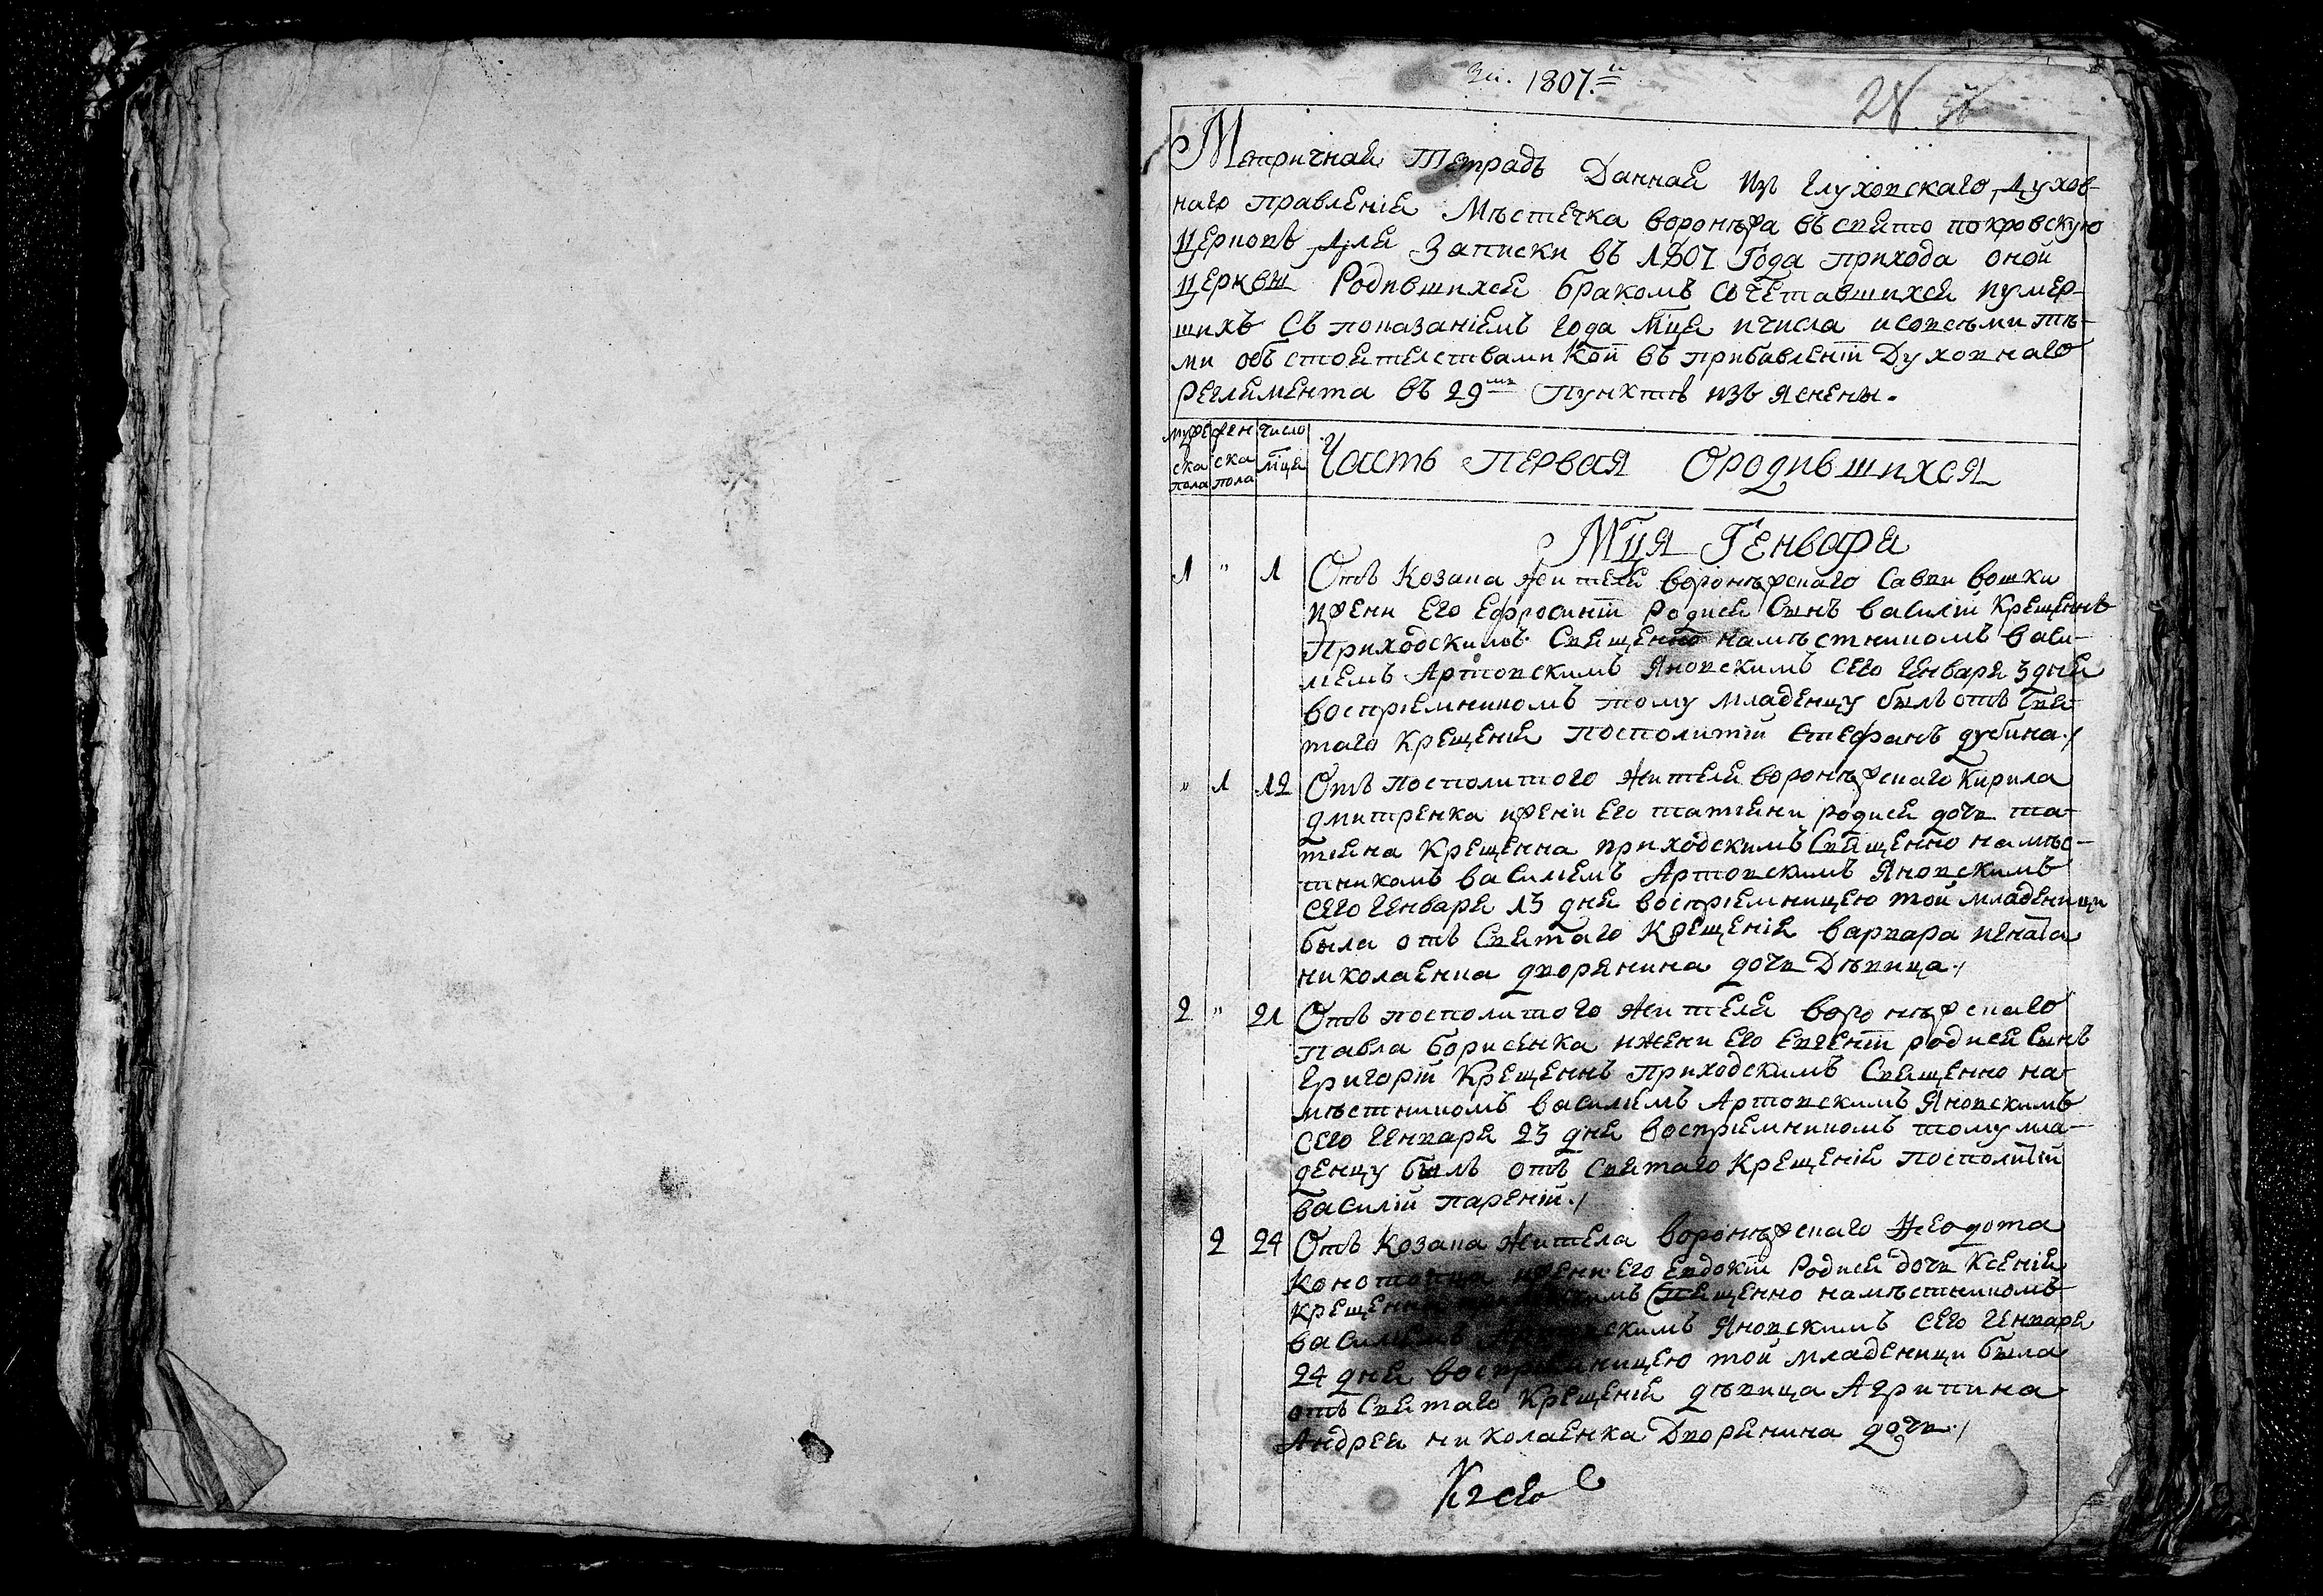 За. 1807.й
28
Метричная Тетрадь Данная изъ глуховскаго Духов-
наго правленія Мѣстечка воронѣжа въ свято покровскую
Церковь Для Записки въ 1807 Года прихода оной
Церквы Родившихся бракомъ Сочетавшихся иумер-
шихъ Съ показаніемъ года Мця ичисла исовсѣми тѣ-
ми обстоятелствами кои въ прибавленіи Духовнаго
Реглемента въ 29мъ Пунктѣ изъяснены.
муже жен Число
ска ска мця Часть первая Ородившихся
пола пола
Мця Генваря
1 " 1 Отъ Козака жителя воронѣжскаго Савки вошки
ижени Его Ефросиніи Родися Сынъ василій Крещеннъ
Приходскимъ Священно намѣстникомъ васи-
лиемъ Артовскимъ Яновскимъ Сего Генваря 3 дня
воспріемникомъ тому младенцу былъ отъ Свя-
таго Крещенія посполитій Стефанъ дубина./
" 1 12 Отъ посполитого жителя воронѣжскаго Кирила
дмитренка ижени Его татіяни родися дочь та-
тіяна Крещенна приходскимъ Священно намѣс-
тникомъ василиемъ Артовскимъ Яновскимъ
Сего Генваря 13 дня воспріемницею той младеници
была отъ Святаго Крещенія варвара игната
николаенка дворянина дочь Дѣвица./
2 " 21 Отъ посполитого жителя воронѣжскаго
Павла борисенка ижени Его Евгеніи родися Сынъ
Григорій Крещеннъ Приходскимъ Священно на-
мѣстникомъ василиемъ Артовскимъ Яновскимъ
Сего Генваря 23 дня воспріемникомъ тому мла-
денцу былъ отъ Святаго Крещенія посполитій
василій пареній./
2 24 Отъ Козака жителя воронѣжскаго Феодота
Конотопца ижени Его Евдокіи Родися дочь Ксенія
Крещенна приходскимъ Священно намѣстникомъ
василиемъ Артовскимъ Яновскимъ Сего Генваря
24 дня воспріемницею той младеници была
отъ Святаго Крещенія дѣвица Агрипина
Андрея николаенка Дворянина дочь./